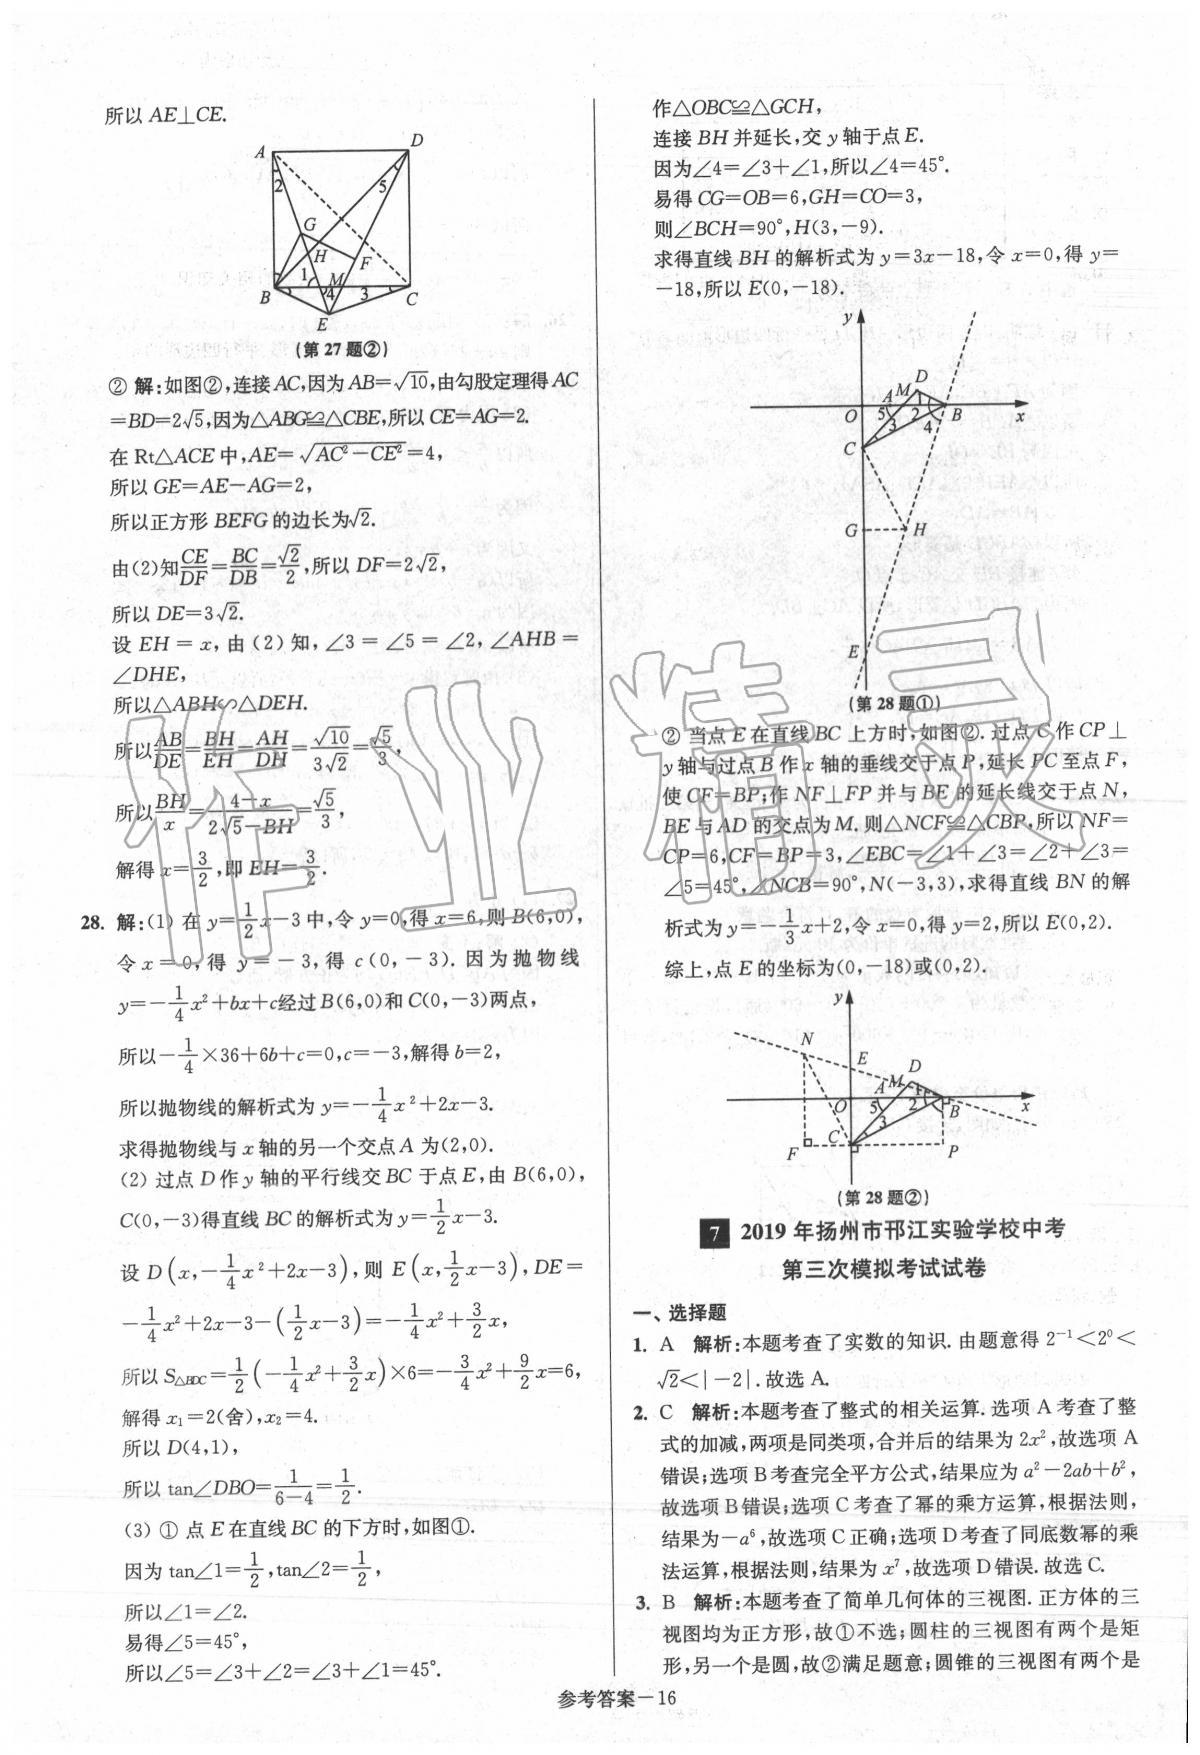 所以 AE⊥CE.
A
D
2
5
G
H
F
1
M
B
4
3
C
E
(第 27 题②)
② 解:如图②,连接 AC,因为 AB=√10,由勾股定理得 AC
=BD=2√5,因为△ABG≌△CBE,所以 CE=AG=2.
在 Rt△ACE 中,AE=√(AC²-CE²)=4,
所以 GE=AE-AG=2,
所以正方形 BEFG 的边长为√2.
由(2)知CE/DF=BC/DB=√2/2,所以 DF=2√2,
所以 DE=3√2.
设 EH = x, 由 (2) 知, ∠3 = ∠5 = ∠2, ∠AHB =
∠DHE,
所以△ABH∽△DEH.
所以AB/DE=BH/EH=AH/DH=√10/3√2=√5/3,
所以BH/x=(4-x)/(2√5-BH)=√5/3,
解得 x=3/2,即 EH=3/2.
28. 解:(1) 在 y=1/2x-3 中,令 y=0,得 x=6,则 B(6,0),
令 x = 0, 得 y = - 3, 得 c (0, - 3). 因为抛物线
y=-1/4x²+bx+c经过 B(6,0)和 C(0,-3)两点,
所以-1/4×36+6b+c=0,c=-3,解得 b=2,
所以抛物线的解析式为 y=-1/4x²+2x-3.
求得抛物线与 x 轴的另一个交点 A 为(2,0).
(2) 过点 D 作 y 轴的平行线交 BC 于点 E,由 B(6,0),
C(0,-3)得直线 BC 的解析式为 y=1/2x-3.
设 D(x,-1/4x²+2x-3),则 E(x,1/2x-3),DE=
-1/4x²+2x-3-(1/2x-3)=-1/4x²+3/2x,
所以 S△BDC=1/2(-1/4x²+3/2x)×6=-3/4x²+9/2x=6,
解得 x₁=2(舍),x₂=4.
所以 D(4,1),
所以 tan∠DBO=1/(6-4)=1/2.
(3) ① 点 E 在直线 BC 的下方时,如图①.
因为 tan∠1=1/2,tan∠2=1/2,
所以∠1=∠2.
易得∠5=45°,
所以∠5=∠3+∠2=∠3+∠1=45°.
作△OBC≌△GCH,
连接 BH 并延长,交 y 轴于点 E.
因为∠4=∠3+∠1,所以∠4=45°.
易得 CG=OB=6,GH=CO=3,
则∠BCH=90°,H(3,-9).
求得直线 BH 的解析式为 y=3x-18,令 x=0,得 y=
-18,所以 E(0,-18).
y
D
A
M
1
O
5
2
B
x
3
4
C
G
H
E
(第 28 题①)
② 当点 E 在直线 BC 上方时,如图②. 过点 C 作 CP⊥
y 轴与过点 B 作 x 轴的垂线交于点 P,延长 PC 至点 F,
使 CF=BP;作 NF⊥FP 并与 BE 的延长线交于点 N,
BE 与 AD 的交点为 M. 则△NCF≌△CBP,所以 NF=
CP=6,CF=BP=3,∠EBC=∠1+∠3=∠2+∠3=
∠5=45°,∠NCB=90°,N(-3,3),求得直线 BN 的解
析式为 y=-1/3x+2,令 x=0,得 y=2,所以 E(0,2).
综上,点 E 的坐标为(0,-18)或(0,2).
y
N
E
D
A
M
1
O
5
2
B
x
3
C
F
P
(第 28 题②)
7 2019 年扬州市邗江实验学校中考
第三次模拟考试试卷
一、选择题
1. A 解析:本题考查了实数的知识. 由题意得 2⁻¹<2⁰<
√2<|-2|. 故选 A.
2. C 解析:本题考查了整式的相关运算. 选项 A 考查了整
式的加减,两项是同类项,合并后的结果为 2x²,故选项 A
错误;选项 B 考查完全平方公式,结果应为 a²-2ab+b²,
故选项 B 错误;选项 C 考查了幂的乘方运算,根据法则,
结果为-a⁶,故选项 C 正确;选项 D 考查了同底数幂的乘
法运算,根据法则,结果为 x⁷,故选项 D 错误. 故选 C.
3. B 解析:本题考查了简单几何体的三视图. 正方体的三
视图均为正方形,故①不选;圆柱的三视图有两个是矩
形,另一个是圆,故②满足题意;圆锥的三视图有两个是
参考答案-16
作业精灵